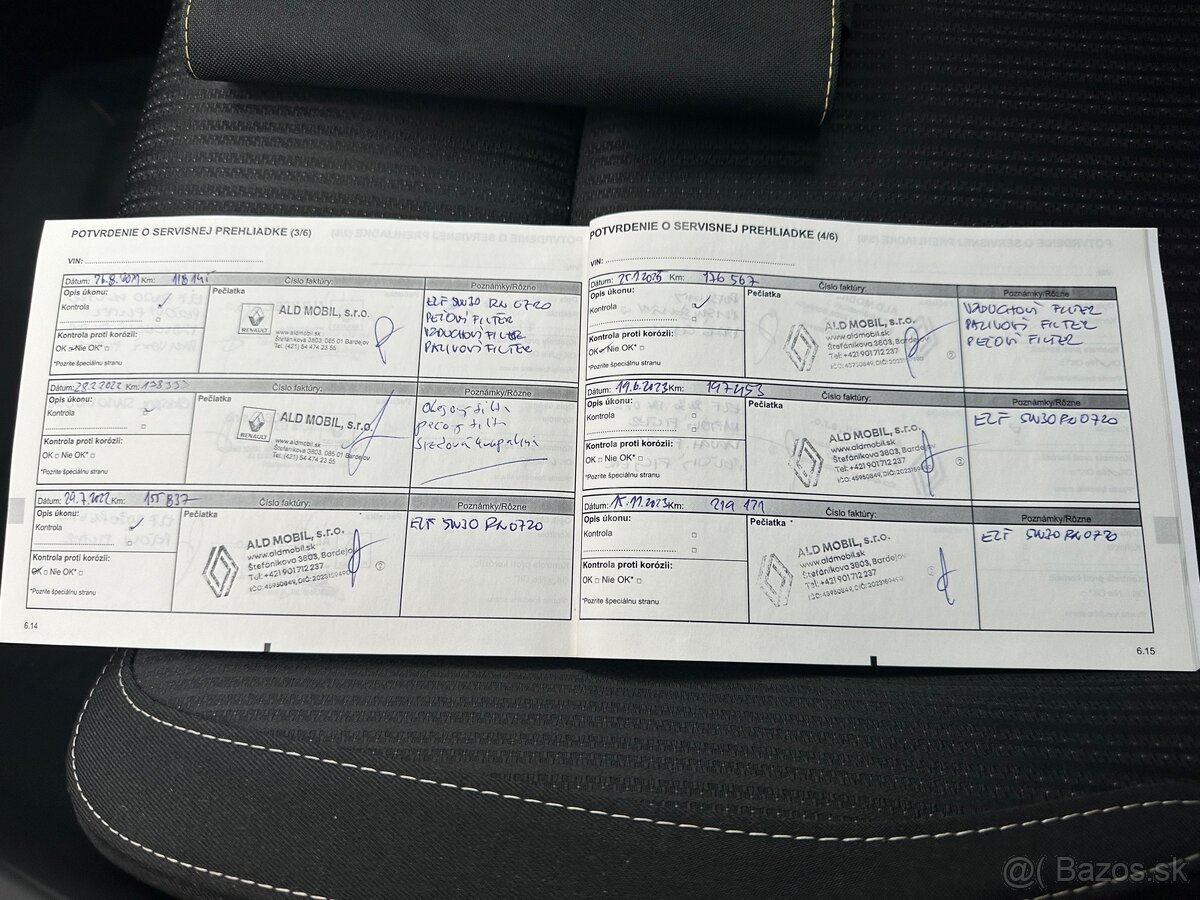 POTVRDENIE O SERVISNEJ PREHLIADKE (3/6)
VIN:
Dátum: 26.8.2021 Km:
Číslo faktúry:
Poznámky/Rôzne
Opis úkonu:
Kontrola
Kontrola proti korózii:
OK Nie OK*
*Pozrite špeciálnu stranu
Pečiatka
RENAULT
ALD MOBIL, s.r.o.
www.aldmobil.sk
Štefánikova 3803, 085 01 Bardejov
Tel. (421) 54 474 23 55
ELF 5W30 RN 0720
PEĽOVÝ FILTER
VZDUCHOVÝ FILTER
PALIVOVÝ FILTER
Dátum: 28.2.2022 Km: 138353
Číslo faktúry:
Poznámky/Rôzne
Opis úkonu:
Kontrola
Kontrola proti korózii:
OK Nie OK*
*Pozrite špeciálnu stranu
Pečiatka
RENAULT
ALD MOBIL, s.r.o.
www.aldmobil.sk
Štefánikova 3803, 085 01 Bardejov
Tel. (421) 54 474 23 55
Olejový filter
peľový filter
Dátum: 29.7.2022 Km: 155837
Číslo faktúry:
Poznámky/Rôzne
Opis úkonu:
Kontrola
Kontrola proti korózii:
OK Nie OK*
*Pozrite špeciálnu stranu
Pečiatka
ALD MOBIL, s.r.o.
www.aldmobil.sk
Štefánikova 3803, Bardejov
Tel.: +421 901 712 237
ELF 5W30 RN0720
6.14
POTVRDENIE O SERVISNEJ PREHLIADKE (4/6)
VIN:
Dátum: Km: 176 567
Číslo faktúry:
Poznámky/Rôzne
Opis úkonu:
Kontrola
Kontrola proti korózii:
OK Nie OK*
*Pozrite špeciálnu stranu
Pečiatka
ALD MOBIL, s.r.o.
www.aldmobil.sk
Štefánikova 3803, Bardejov
Tel.: +421 901 712 237
VZDUCHOVÝ FILTER
PALIVOVÝ FILTER
PEĽOVÝ FILTER
Dátum: 19.6.2023 Km: 197453
Číslo faktúry:
Poznámky/Rôzne
Opis úkonu:
Kontrola
Kontrola proti korózii:
OK Nie OK*
*Pozrite špeciálnu stranu
Pečiatka
ALD MOBIL, s.r.o.
www.aldmobil.sk
Štefánikova 3803, Bardejov
Tel.: +421 901 712 237
ELF 5W30 RN0720
Dátum: 15.11.2023 Km: 219 171
Číslo faktúry:
Poznámky/Rôzne
Opis úkonu:
Kontrola
Kontrola proti korózii:
OK Nie OK*
*Pozrite špeciálnu stranu
Pečiatka
ALD MOBIL, s.r.o.
www.aldmobil.sk
Štefánikova 3803, Bardejov
Tel.: +421 901 712 237
ELF 5W30 RN0720
6.15
@( Bazos.sk